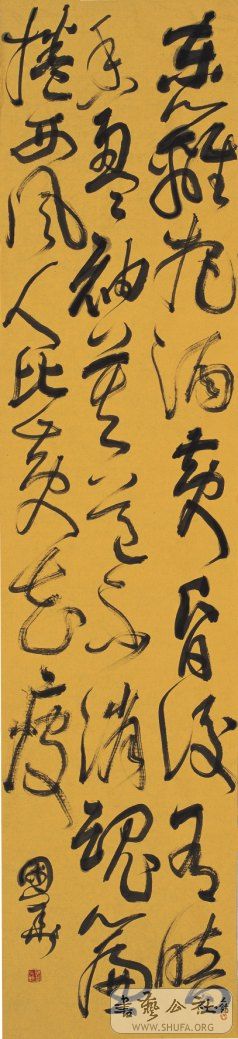 东篱把酒黄昏后有暗
香盈袖莫道不消魂帘
卷西风人比黄花瘦
国平
書藝公社
WWW.SHUFA.ORG